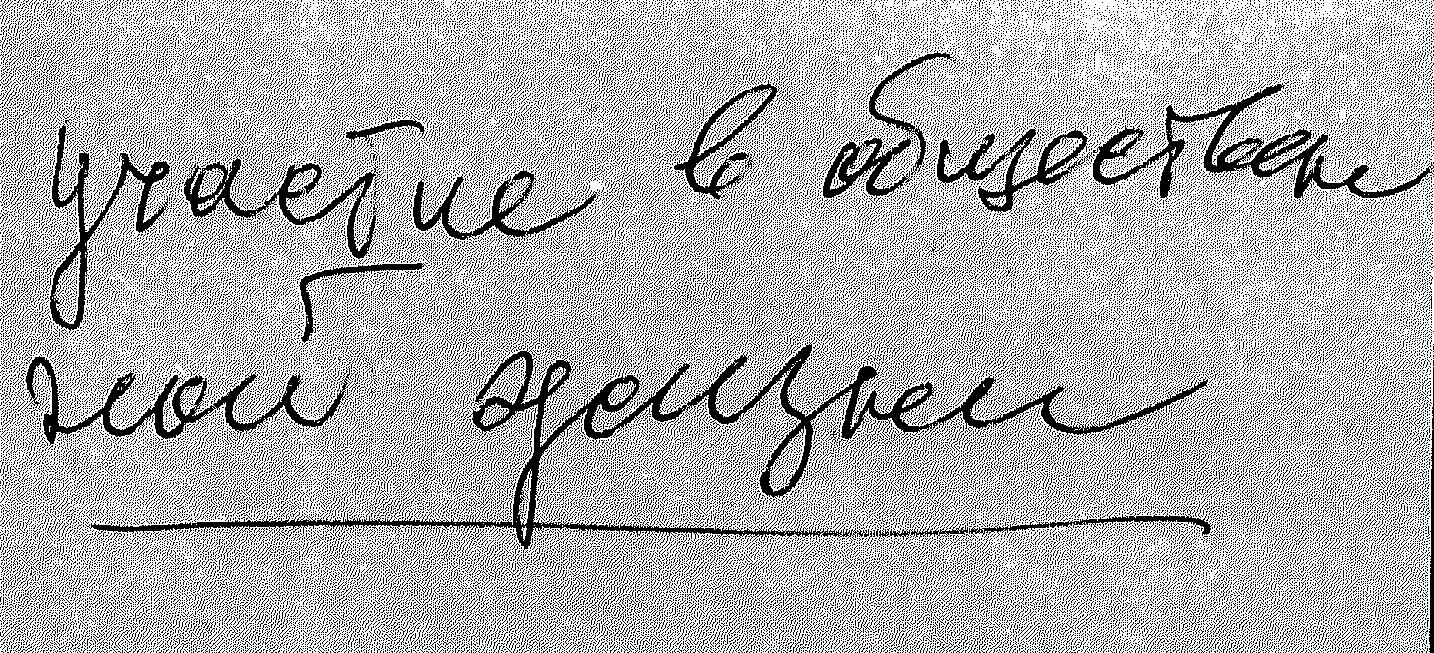 участие в обществен
ной жизни